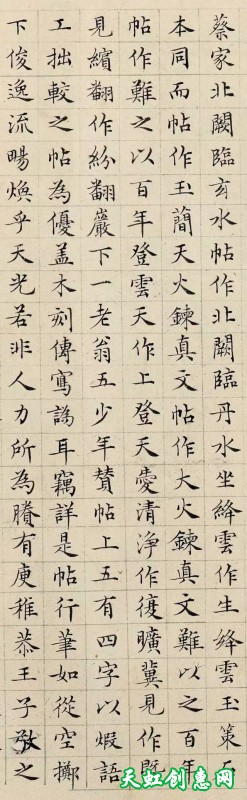 蔡家北闕臨玄水帖作北闕臨丹水坐絳雲作生絳雲玉策
本同而帖作玉簡天火鍊真文帖作大火鍊真文難以之百年
帖作難之以百年登雲天作上登天愛清淨作復曠冀見作既
見繽翻作紛翻巖下一老翁五少年贊帖上五有四字以煅語
工拙較之帖為優蓋木刻傳寫譌耳竊詳是帖行筆如從空擲
下俊逸流暘煥乎天光若非人力所為賸有庾稚恭王子敬之
天虹创意网